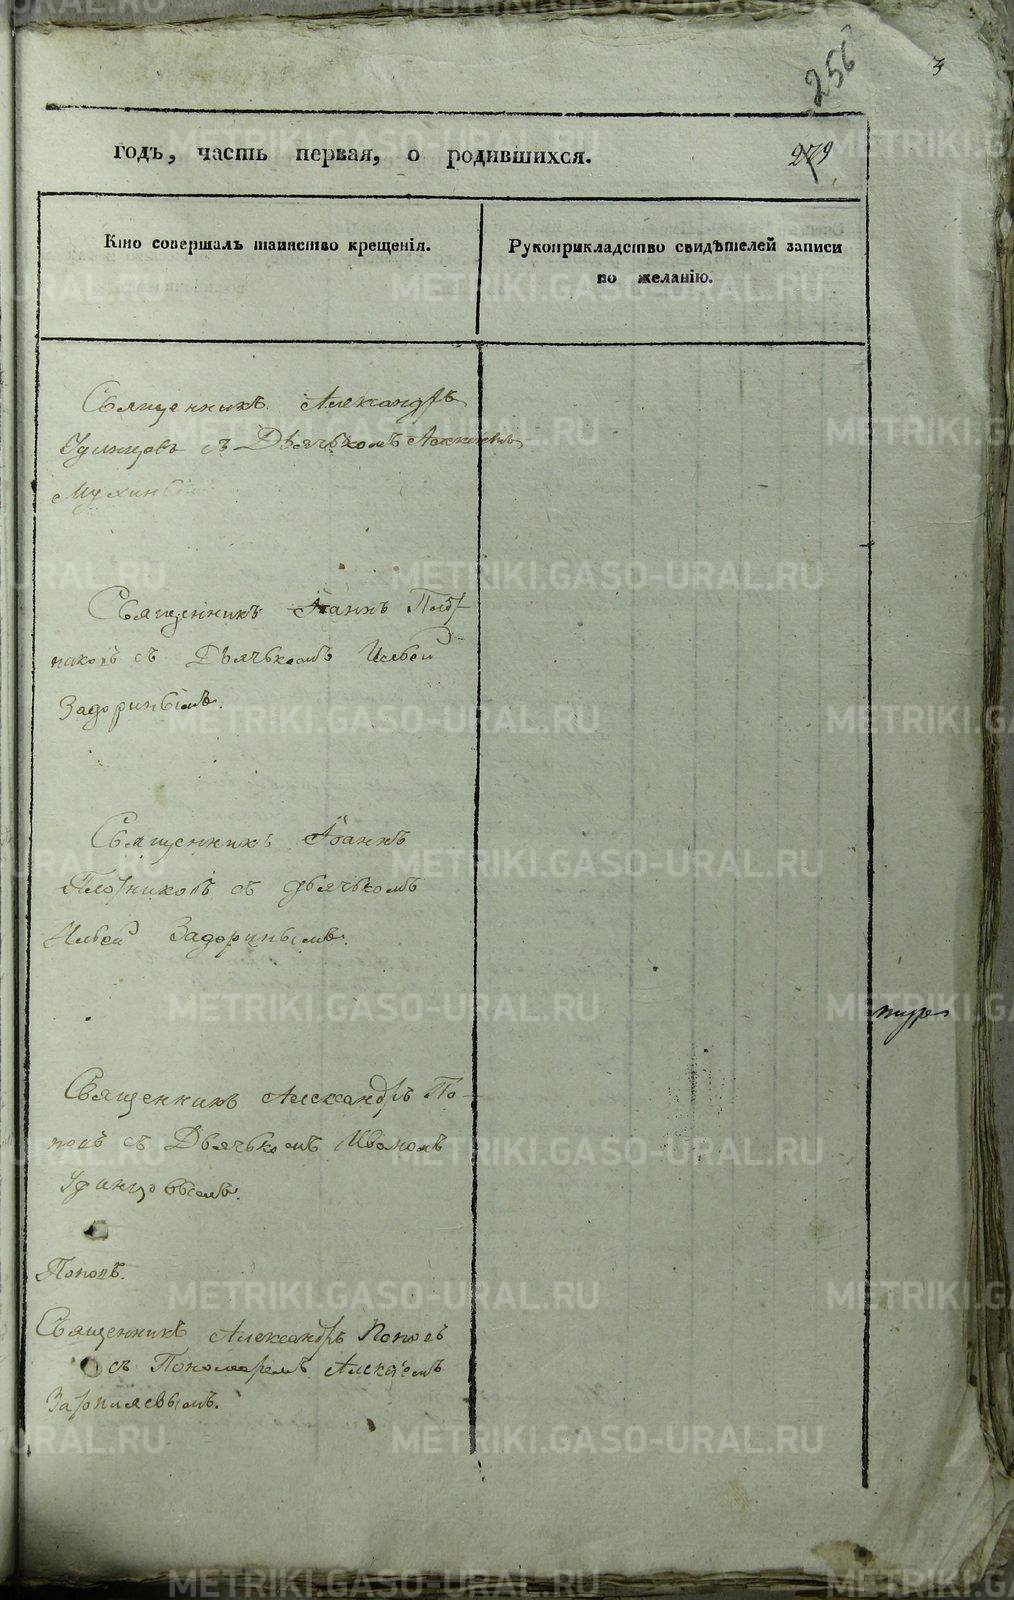 256
3
годъ, часть первая, о родившихся.
279
Кто совершалъ таинство крещенія.
Рукоприкладство свидѣтелей записи
по желанію.
Священникъ Александръ
Удинцовъ съ Дьячькомъ
Мухинымъ
Священникъ Іоаннъ Плот-
никовъ съ Дьячькомъ Ильей
Задоринымъ.
Священникъ Іоаннъ
Плотниковъ съ дьячькомъ
Ильей Задоринымъ.
Священникъ Александръ По-
повъ съ Дьячькомъ Иваномъ
Удинцовымъ.
Поповъ.
Священникъ Александръ Поповъ
съ Пономаремъ Алексѣемъ
METRIKI.GASO-URAL.RU